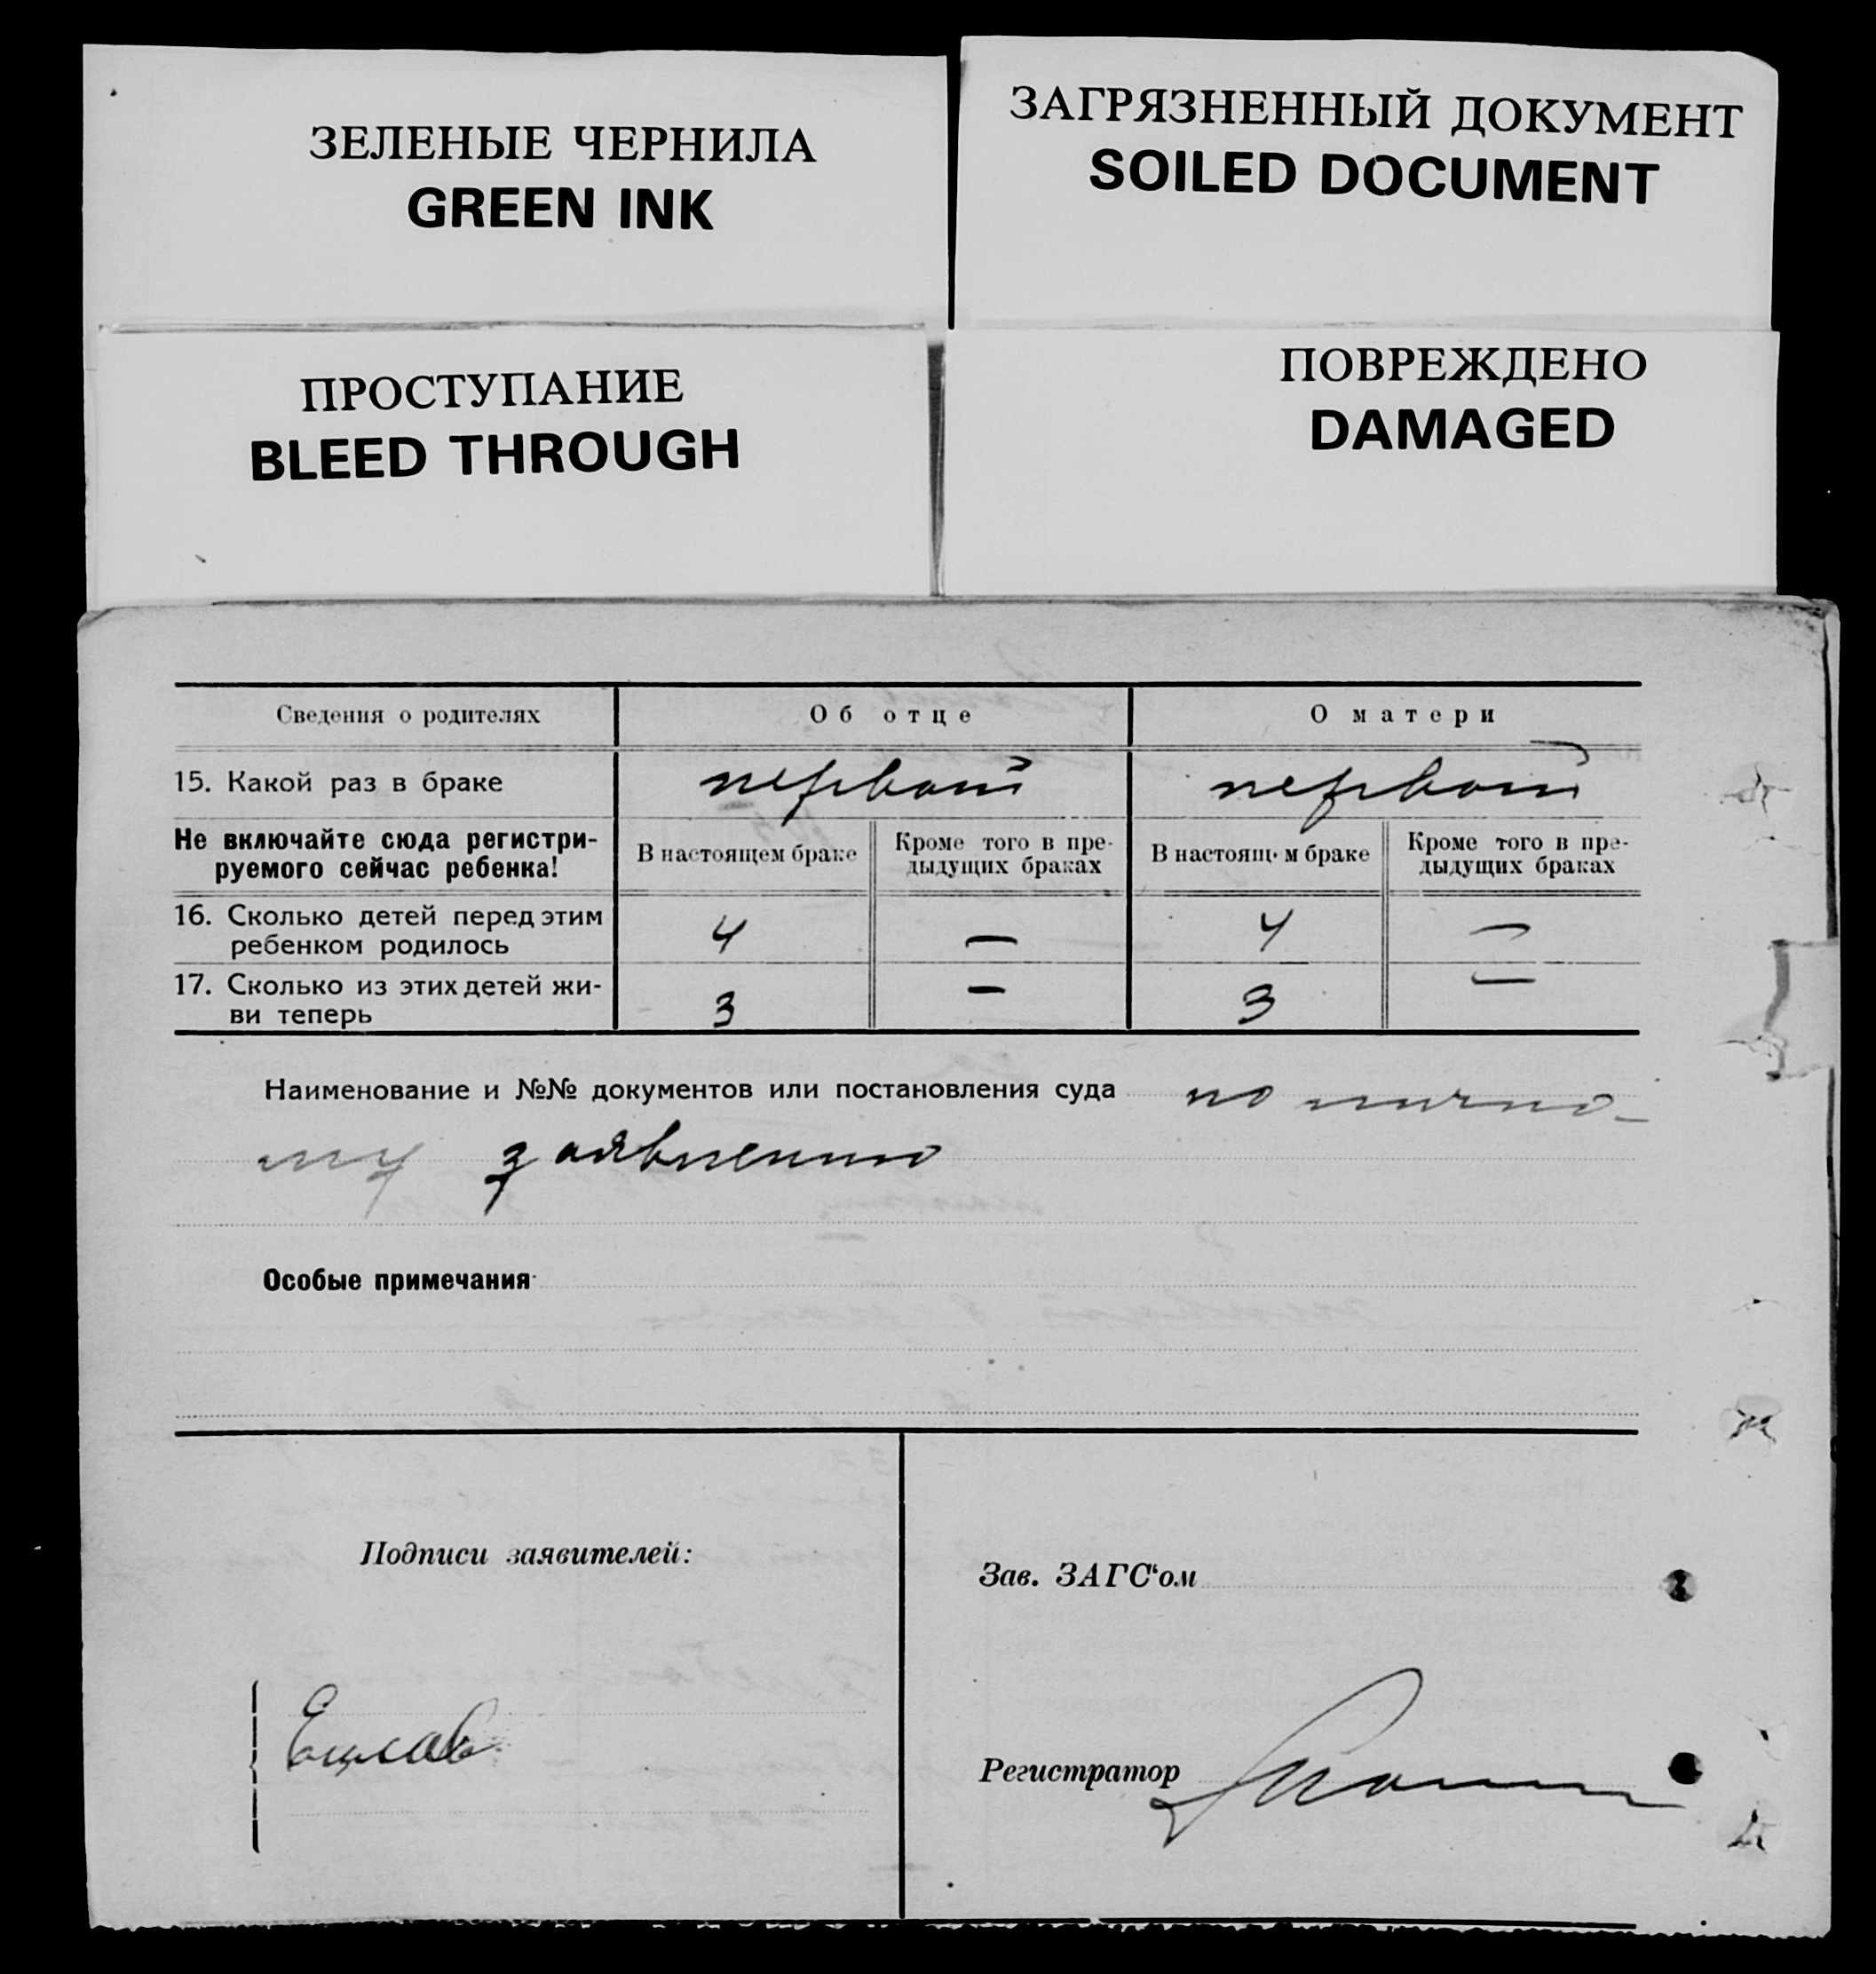 ЗЕЛЕНЫЕ ЧЕРНИЛА
GREEN INK
ЗАГРЯЗНЕННЫЙ ДОКУМЕНТ
SOILED DOCUMENT
ПРОСТУПАНИЕ
BLEED THROUGH
ПОВРЕЖДЕНО
DAMAGED
Сведения о родителях Об отце О матери
15. Какой раз в браке первый первый
Не включайте сюда регистри-
руемого сейчас ребенка!
В настоящем браке
Кроме того в пре-
дыдущих браках
В настоящ м браке
Кроме того в пре-
дыдущих браках
16. Сколько детей перед этим
ребенком родилось 4 — 4 —
17. Сколько из этих детей жи-
ви теперь 3 — 3 —
Наименование и №№ документов или постановления суда по лично-
му заявлению
Особые примечания
Подписи заявителей:
Зав. ЗАГС‘ом
Регистратор